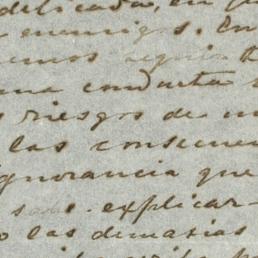 delicada, en
enemigos. En
emos seguir
una conducta
riesgos de
las consecuen
ignorancia que
explicar-
o las demasias